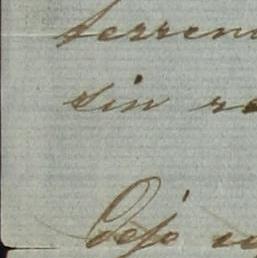 terren
sin re
Dejo